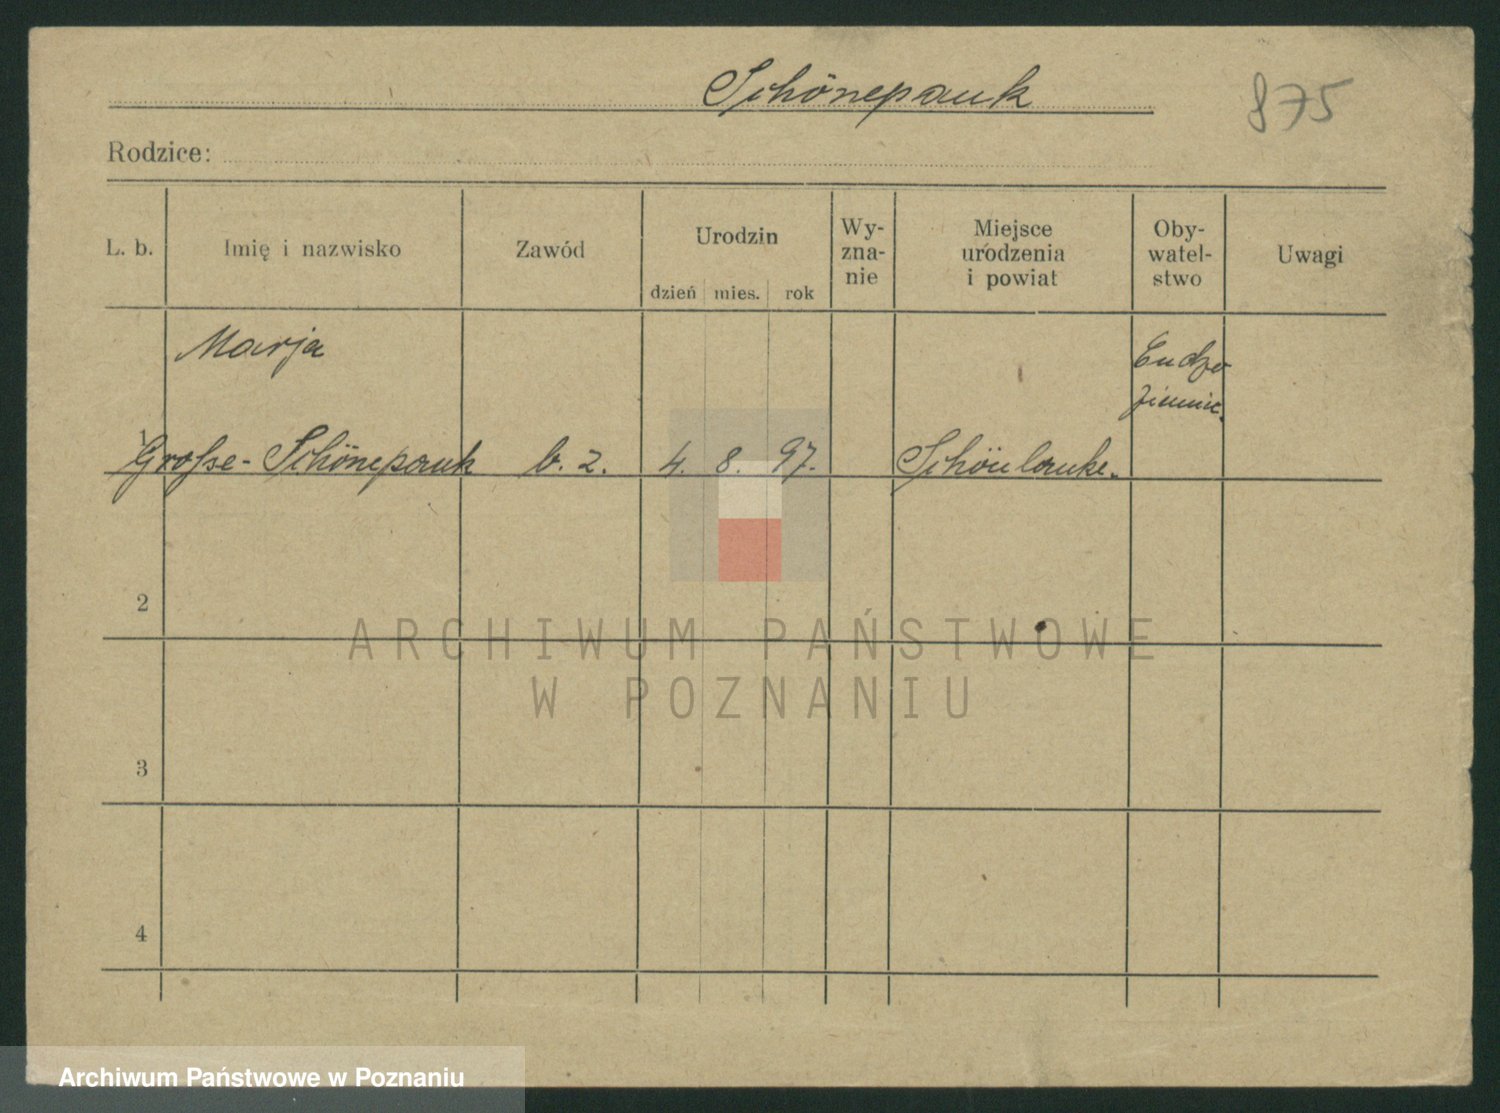 Schönepauk
875
Rodzice:
L. b.
Imię i nazwisko
Zawód
Urodzin
dzień mies. rok
Wy-
zna-
nie
Miejsce
urodzenia
i powiat
Oby-
watel-
stwo
Uwagi
Marja
Cudzo
ziemiec.
1
Grosse-Schönepauk b. z. 4. 8. 97. Schönlanke.
2
3
4
ARCHIWUM PAŃSTWOWE
W POZNANIU
Archiwum Państwowe w Poznaniu